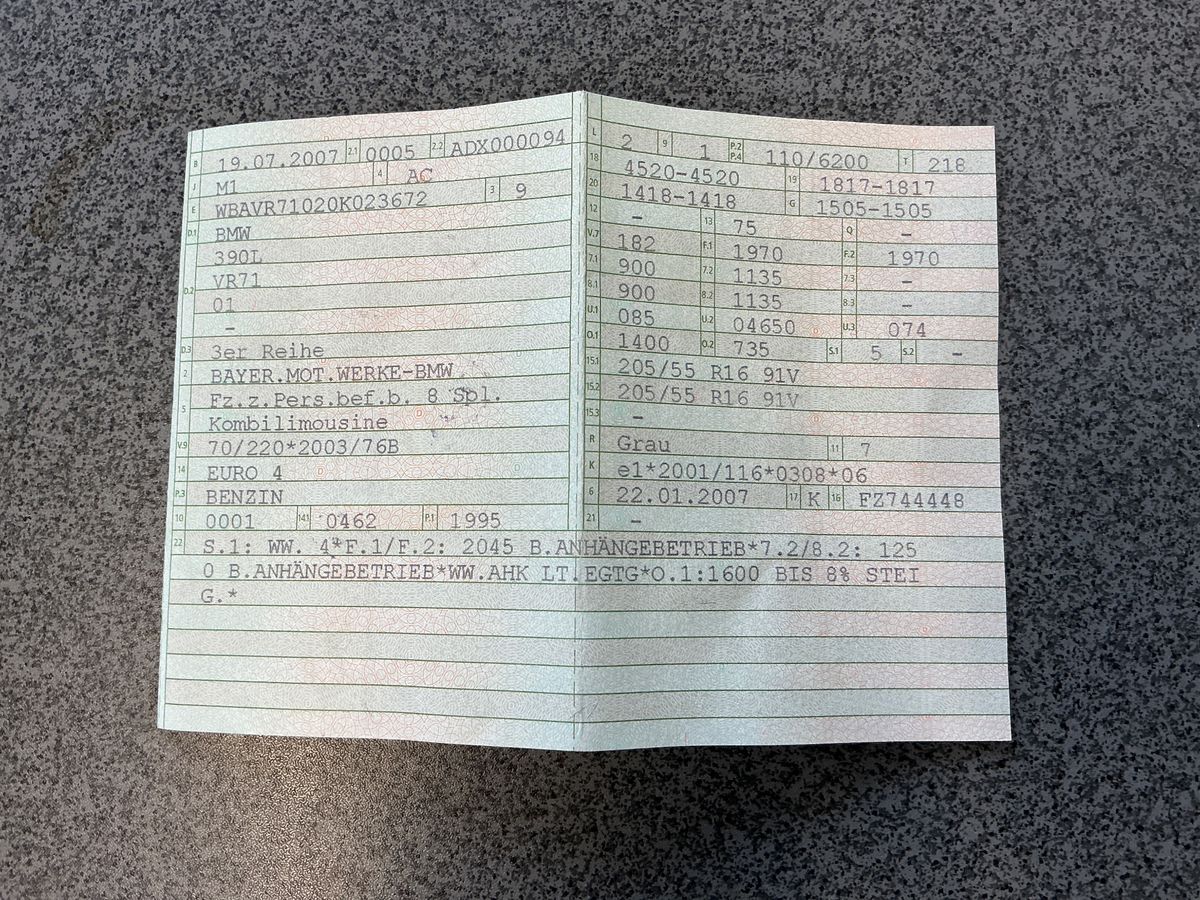 B 19.07.2007 2.1 0005 2.2 ADX000094
J M1 4 AC
E WBAVR71020K023672 3 9
D.1 BMW
390L
D.2 VR71
01
–
D.3 3er Reihe
2 BAYER.MOT.WERKE-BMW
Fz.z.Pers.bef.b. 8 Spl.
5 Kombilimousine
V.9 70/220*2003/76B
14 EURO 4
P.3 BENZIN
10 0001 14.1 0462 P.1 1995
L 2 9 1 P.2 P.4 110/6200 T 218
18 4520-4520 19 1817-1817
20 1418-1418 G 1505-1505
12 – 13 75 Q –
V.7 182 F.1 1970 F.2 1970
7.1 900 7.2 1135 7.3 –
8.1 900 8.2 1135 8.3 –
U.1 085 U.2 04650 U.3 074
O.1 1400 O.2 735 S.1 5 S.2 –
15.1 205/55 R16 91V
15.2 205/55 R16 91V
15.3 –
R Grau 11 7
K e1*2001/116*0308*06
6 22.01.2007 17 K 16 FZ744448
21 –
22 S.1: WW. 4*F.1/F.2: 2045 B.ANHÄNGEBETRIEB*7.2/8.2: 125
0 B.ANHÄNGEBETRIEB*WW.AHK LT.EGTG*O.1:1600 BIS 8% STEI
G.*